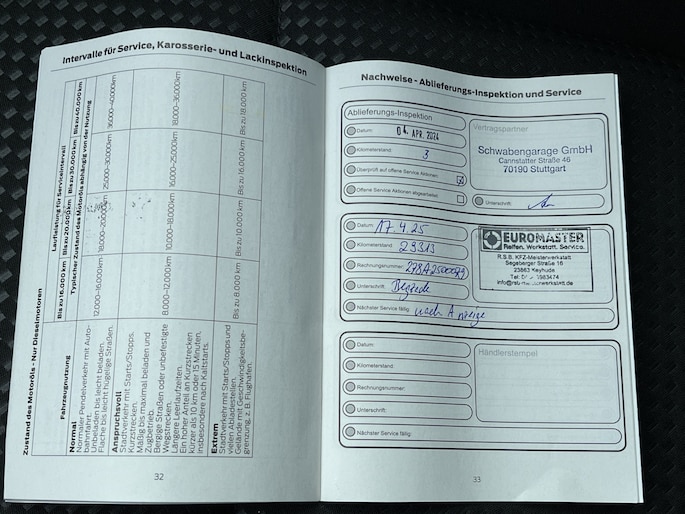 Intervalle für Service, Karosserie- und Lackinspektion
Zustand des Motoröls - Nur Dieselmotoren
Fahrzeugnutzung
Laufleistung für Serviceintervall
Bis zu 20.000 km
Bis zu 30.000 km
Bis zu 40.000 km
Typischer Zustand des Motoröls abhängig von der Nutzung
Normal
Normaler Pendelverkehr mit Auto-
bahnfahrt.
Unbeladen bis leicht beladen.
Flache bis leicht hügelige Straßen.
12.000–16.000km
18.000–20.000km
25.000–30.000km
36.000–40.000km
Anspruchsvoll
Stadtverkehr mit Starts/Stopps.
Kurzstrecken.
Mäßig bis maximal beladen und
Zugbetrieb.
Bergige Straßen oder unbefestigte
Wegstrecken.
Längere Leerlaufzeiten.
Ein hoher Anteil an Kurzstrecken
kürzer als 10 km oder 15 Minuten,
insbesondere nach Kaltstarts.
8.000–12.000km
10.000–18.000km
16.000–25.000km
18.000–36.000km
Extrem
Stadtverkehr mit Starts/Stopps und
vielen Abladestellen.
Gelände mit Geschwindigkeitsbe-
grenzung, z. B. Flughafen.
Bis zu 8.000 km
Bis zu 10.000 km
Bis zu 16.000 km
Bis zu 18.000 km
32
Nachweise - Ablieferungs-Inspektion und Service
Ablieferungs-Inspektion
Datum: 04. APR. 2024
Kilometerstand: 3
Überprüft auf offene Service Aktionen:
Offene Service Aktionen abgearbeitet:
Vertragspartner
Schwabengarage GmbH
Cannstatter Straße 46
70190 Stuttgart
Unterschrift:
Datum: 17.4.25
Kilometerstand: 23313
Rechnungsnummer:
Unterschrift:
Nächster Service fällig: nach Anzeige
EUROMASTER
Reifen. Werkstatt. Service.
R.S.B. KFZ-Meisterwerkstatt
Segeberger Straße 16
23863 Kayhude
Datum:
Kilometerstand:
Rechnungsnummer:
Unterschrift:
Nächster Service fällig:
Händlerstempel
33